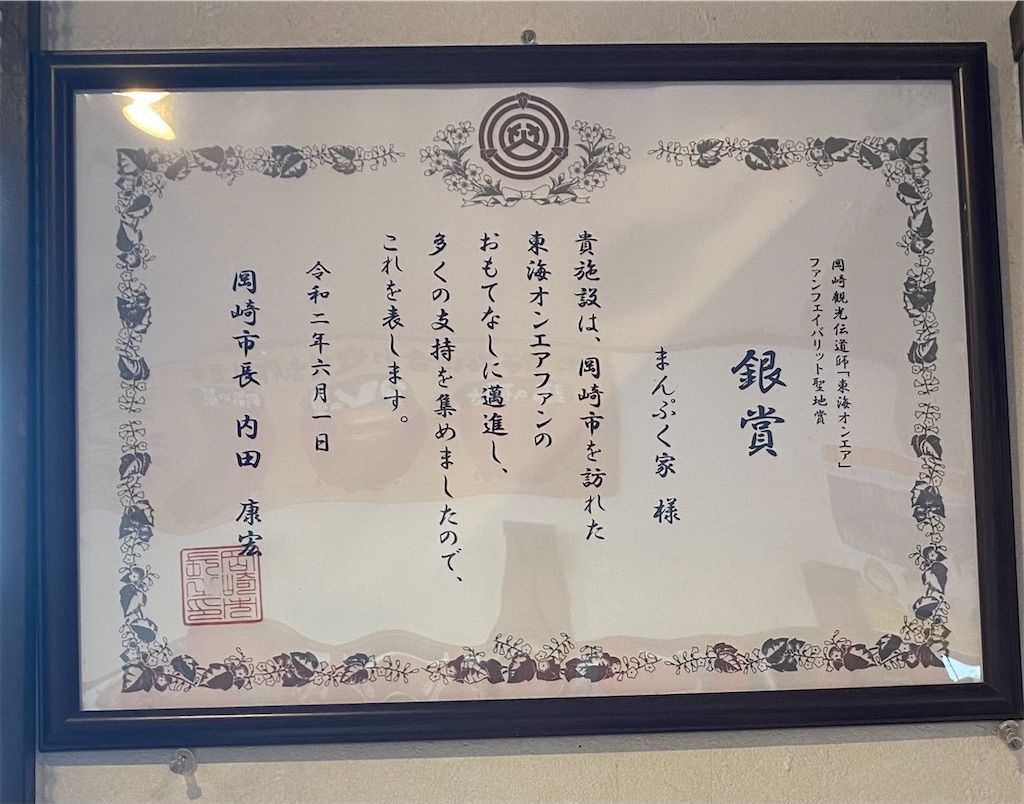 岡崎観光伝道師「東海オンエア」
ファンフェイバリット聖地賞
銀賞
まんぷく家 様
貴施設は、岡崎市を訪れた
東海オンエアファンの
おもてなしに邁進し、
多くの支持を集めましたので、
これを表します。
令和二年六月一日
岡崎市長 内田 康宏
岡崎市長之印